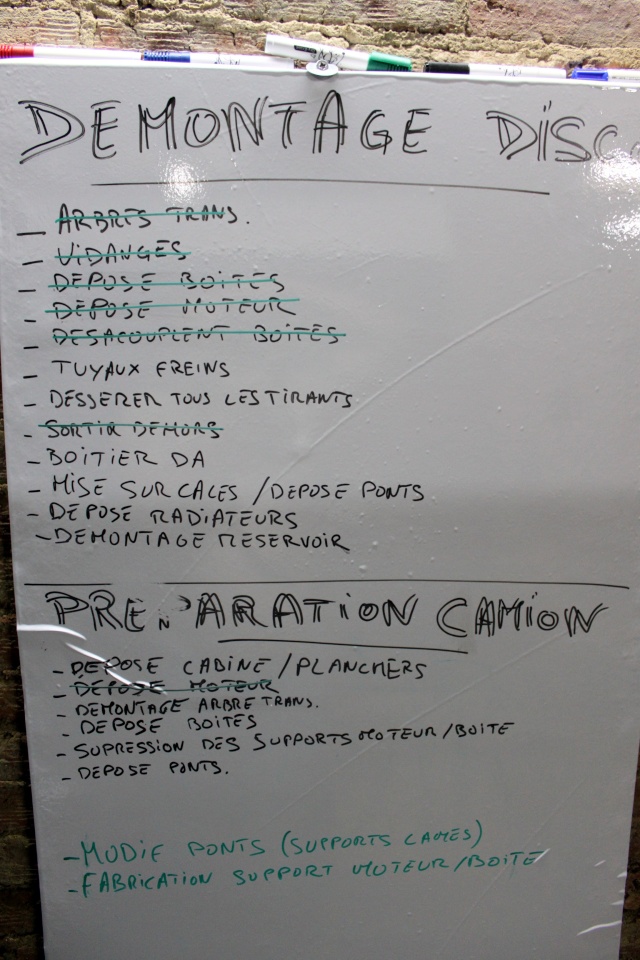 DEMONTAGE DISC
_ ARBRES TRANS.
_ VIDANGES
_ DEPOSE BOITES
_ DEPOSE MOTEUR
_ DESACOUPLENT BOITES
_ TUYAUX FREINS
_ DESSERER TOUS LES TIRANTS
_ SORTIR DEHORS
- BOITIER DA
- MISE SUR CALES / DEPOSE PONTS
- DEPOSE RADIATEURS
- DEMONTAGE RESERVOIR
PREPARATION CAMION
- DEPOSE CABINE / PLANCHERS
- DEPOSE MOTEUR
- DEMONTAGE ARBRE TRANS.
- DEPOSE BOITES
- SUPRESSION DES SUPPORTS MOTEUR / BOITE
- DEPOSE PONTS.
- MODIF PONTS (SUPPORTS LAMES)
- FABRICATION SUPPORT MOTEUR / BOITE